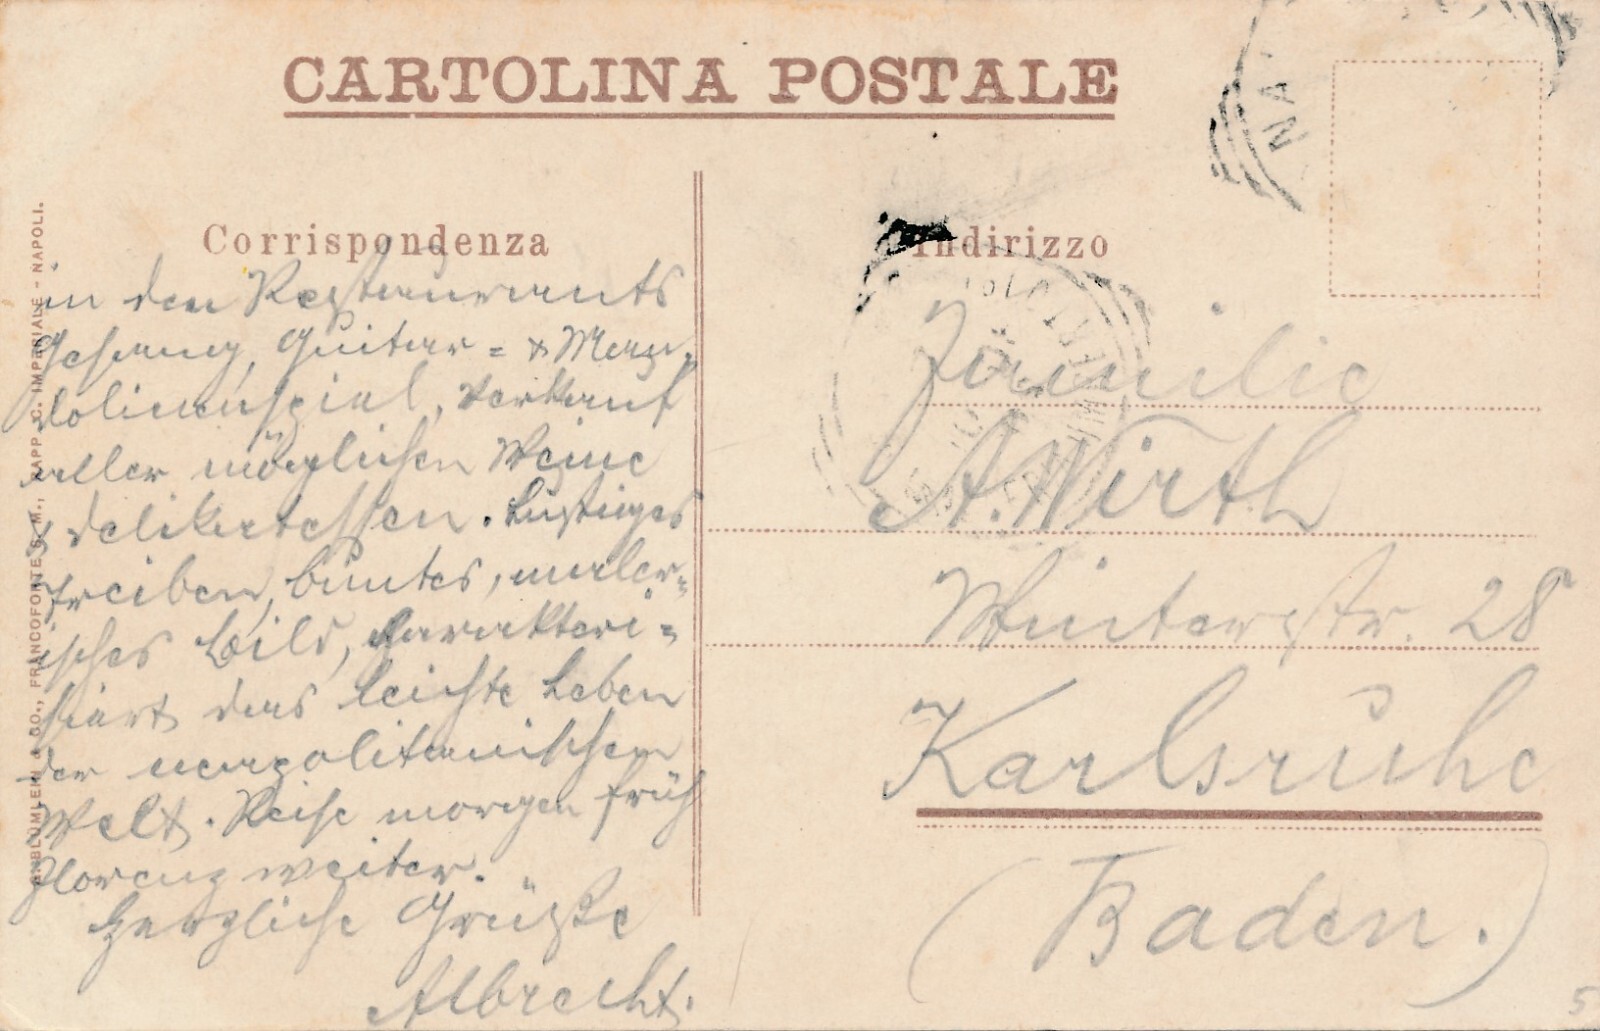 CARTOLINA POSTALE
Corrispondenza
in den Restaurants
Gesang, Guitar= & Man-
dolinenspiel, Verkauf
aller möglichen Weine
& Delikatessen. Lustiges
Treiben, buntes, maler=
isches Bild, charakteri=
siert das leichte Leben
der neapolitanischen
Welt. Reise morgen früh
Florenz weiter.
Herzliche Grüße
Albrecht.
Indirizzo
Familie
A. Wirth
Winterstr. 28
Karlsruhe
(Baden.)
NA
5
& CO., FRANCOFORTE S. M., RAPP. C. IMPERIALE - NAPOLI.